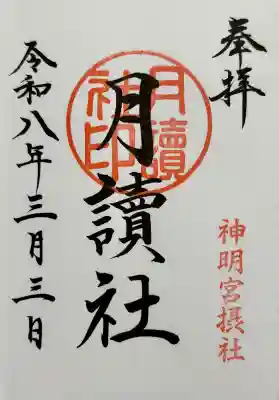 奉拝
神明宮摂社
月讀社
月讀神印
令和八年三月三日